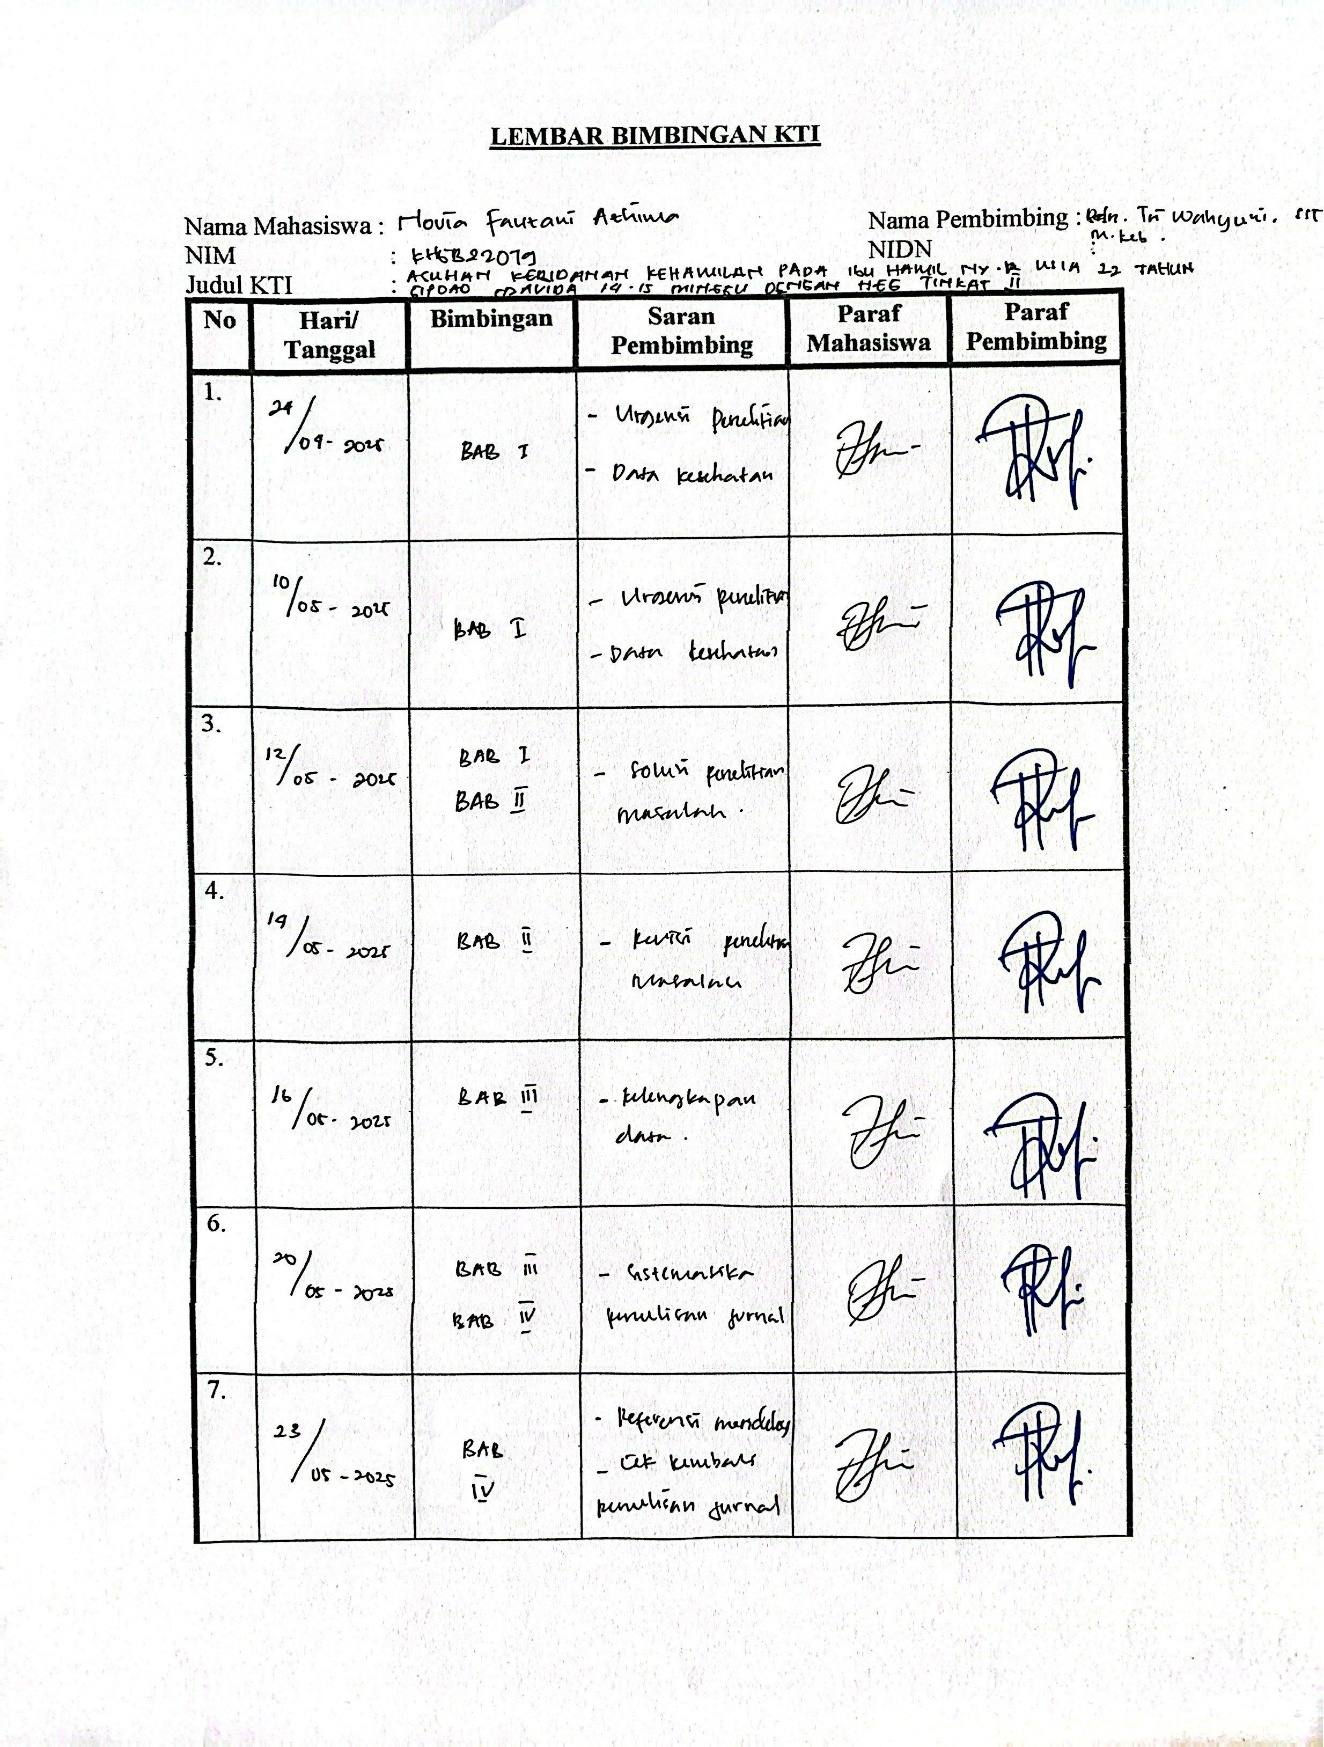 LEMBAR BIMBINGAN KTI
Nama Mahasiswa : Novia Fauzani Azhima
Nama Pembimbing : Bdn. Tri Wahyuni. SST
M.Keb.
NIM : KHGB22079
NIDN :
Judul KTI : ASUHAN KEBIDANAN KEHAMILAN PADA IBU HAMIL NY.R USIA 22 TAHUN
G1P0A0 GRAVIDA 14-15 MINGGU DENGAN HEG TINGKAT II
No Hari/ Tanggal Bimbingan Saran Pembimbing Paraf Mahasiswa Paraf Pembimbing
1. 24/04-2025 BAB I - Urgensi penelitian
- Data kesehatan
2. 10/05-2025 BAB I - Urgensi penelitian
- Data kesehatan
3. 12/05-2025 BAB I - Solusi penelitian
BAB II masalah.
4. 14/05-2025 BAB II - Revisi penelitian
masalah
5. 16/05-2025 BAB III - Kelengkapan
data.
6. 20/05-2025 BAB III - Sistematika
BAB IV penulisan jurnal
7. 23/05-2025 BAB IV - Referensi mendeley
- Cek kembali
penulisan jurnal